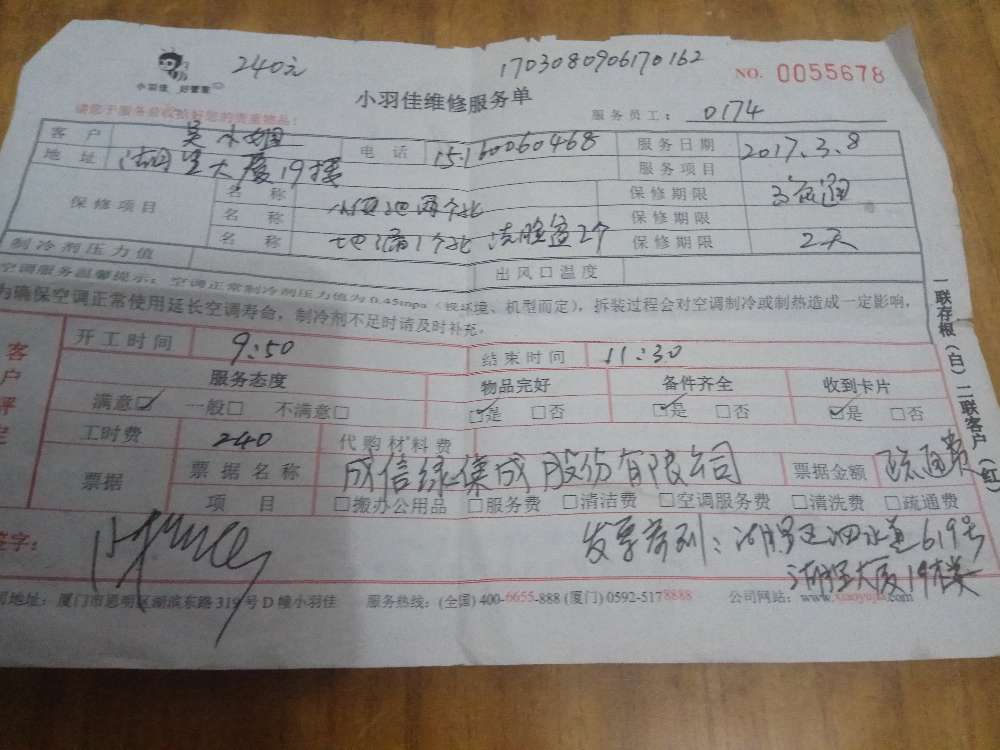 240元
1703080906170162
小羽佳 好管家
NO. 0055678
小羽佳维修服务单
请您于服务前收拾好您的贵重物品!
服务员工: 0174
客户 吴小姐 电话 15160060468 服务日期 2017.3.8
地址 湖里大厦19楼 服务项目
保修项目 名称 保修期限
名称 保修期限
名称 地漏1个 洗脸盆2个 保修期限 2天
制冷剂压力值 出风口温度
空调服务温馨提示: 空调正常制冷剂压力值为0.45mpa(视环境、机型而定), 拆装过程会对空调制冷或制热造成一定影响,
为确保空调正常使用延长空调寿命, 制冷剂不足时请及时补充。
客户评定
开工时间 9:50 结束时间 11:30
服务态度 物品完好 备件齐全 收到卡片
满意☑ 一般□ 不满意□ ☑是 □否 ☑是 □否 ☑是 □否
工时费 240 代购材料费
票据 票据名称 成信绿集成股份有限公司 票据金额 疏通费
项目 □搬办公用品 □服务费 □清洁费 □空调服务费 □清洗费 □疏通费
签字:
发票寄到: 湖里区泗水道619号
湖里大厦19楼
司地址: 厦门市思明区湖滨东路319号D幢小羽佳 服务热线: (全国)400-6655-888 (厦门)0592-5178888 公司网站: www.xiaoyujia.com
一联存根(白) 二联客户(红)